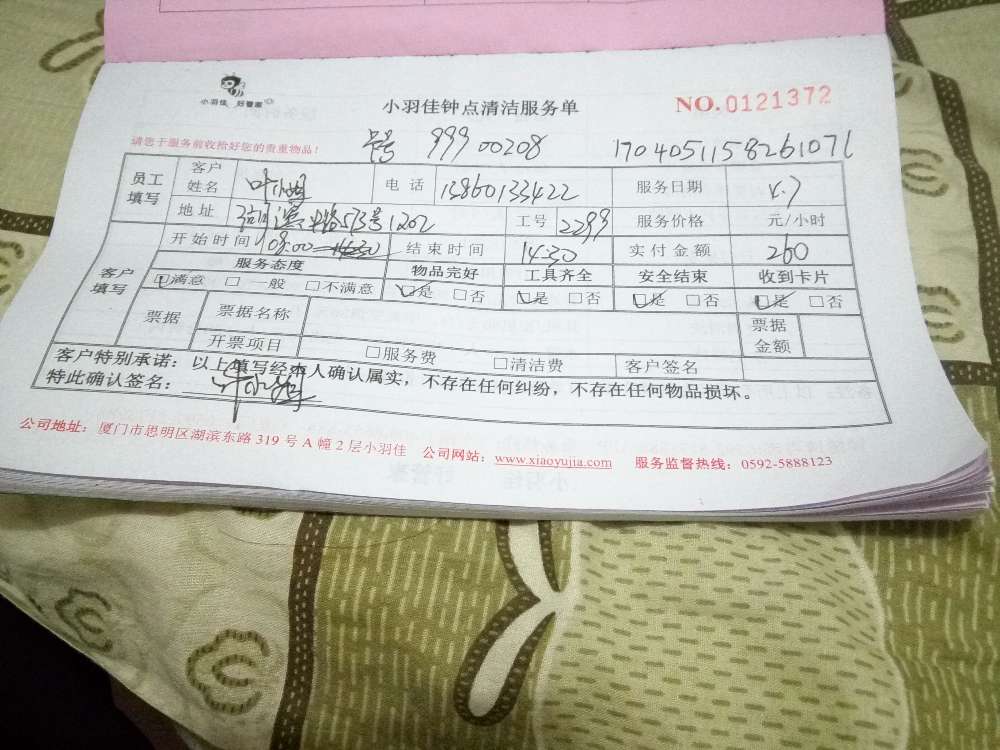 小羽佳 好管家
小羽佳钟点清洁服务单
NO.0121372
请您于服务前收拾好您的贵重物品!
99900208 1704051158261071
员工填写 客户姓名 电话 13860133422 服务日期 4.7
地址 573号1202 工号 2299 服务价格 元/小时
客户填写 开始时间 09:00 结束时间 14:30 实付金额 260
服务态度 物品完好 工具齐全 安全结束 收到卡片
☑满意 □一般 □不满意 ☑是 □否 ☑是 □否 ☑是 □否 ☑是 □否
票据 票据名称 票据金额
开票项目 □服务费 □清洁费 客户签名
客户特别承诺:以上填写经本人确认属实,不存在任何纠纷,不存在任何物品损坏。
特此确认签名:
公司地址:厦门市思明区湖滨东路319号A幢2层小羽佳 公司网站:www.xiaoyujia.com 服务监督热线:0592-5888123